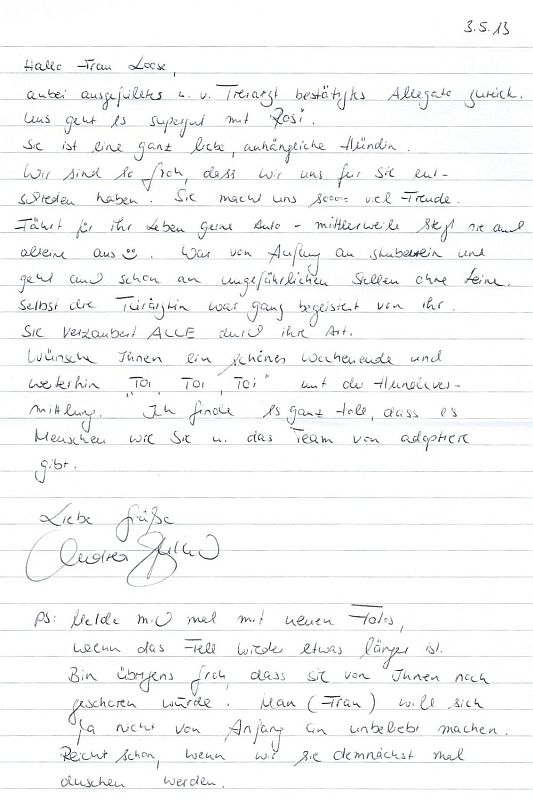 3.5.13
Hallo Frau Loose,
anbei ausgefülltes u. v. Tierarzt bestätigtes Allegato zurück.
Uns geht es supergut mit Rosi.
Sie ist eine ganz liebe, anhängliche Hündin.
Wir sind so froh, dass wir uns für sie ent-
schieden haben. Sie macht uns soooo viel Freude.
Fährt für ihr Leben gerne Auto - mittlerweile steigt sie auch
alleine aus☺. War von Anfang an stubenrein und
geht auch schon an ungefährlichen Stellen ohne Leine.
Selbst die Tierärztin war ganz begeistert von ihr.
Sie verzaubert ALLE durch ihre Art.
Wünsche Ihnen ein schönes Wochenende und
weiterhin "Toi, Toi, Toi" mit der Hundever-
mittlung. Ich finde es ganz toll, dass es
Menschen wie Sie u. das Team von adoptiere
gibt.
Liebe Grüße
Andrea
PS: Melde mich mal mit neuen Fotos,
wenn das Fell wieder etwas länger ist.
Bin übrigens froh, dass sie von Ihnen noch
geschoren wurde. Man (Frau) will sich
ja nicht von Anfang an unbeliebt machen.
Reicht schon, wenn wir sie demnächst mal
duschen werden.